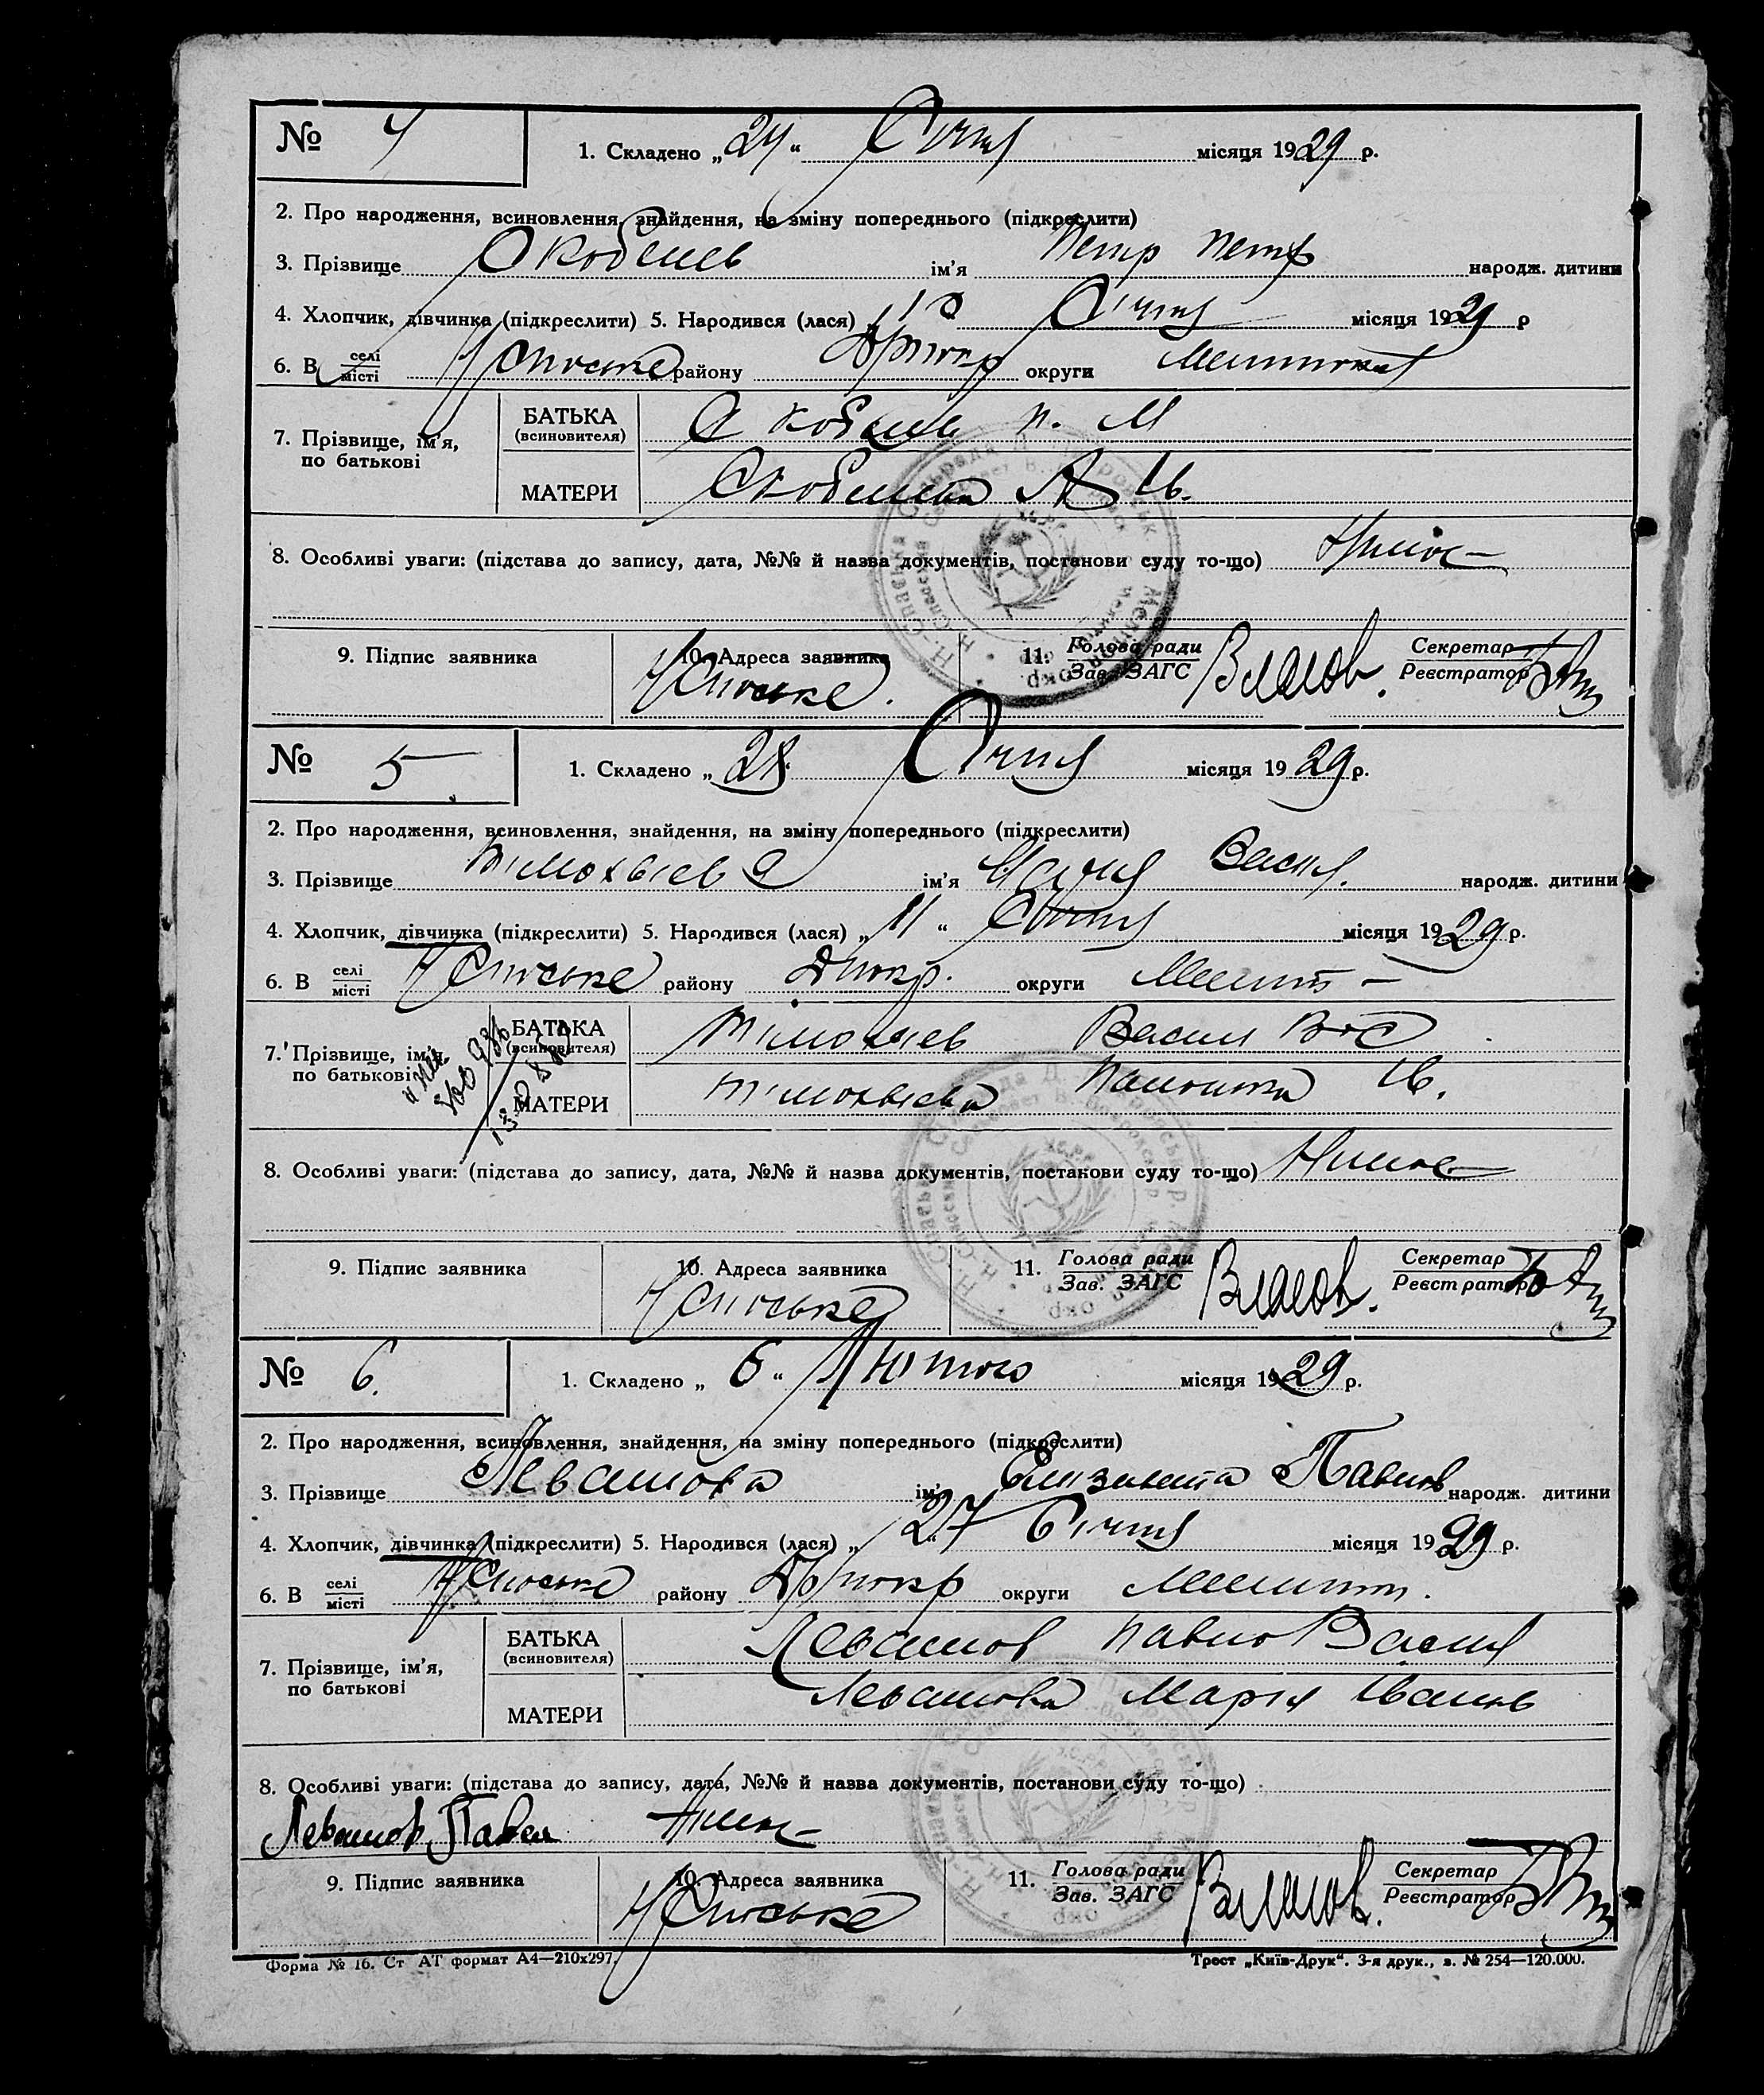 № 4 1. Складено „24“ Січня місяця 1929 р.
2. Про народження, всиновлення, знайдення, на зміну попереднього (підкреслити)
3. Прізвище Скобелев ім'я Петр Петр народж. дитини
4. Хлопчик, дівчинка (підкреслити) 5. Народився (лася) Січня місяця 1929 р
6. В селі місті Н Спаське району округи
7. Прізвище, ім'я, по батькові
БАТЬКА (всиновителя) Скобелев П. М
МАТЕРИ Скобелева А И.
8. Особливі уваги: (підстава до запису, дата, №№ й назва документів, постанови суду то-що)
9. Підпис заявника 10. Адреса заявника 11. Голова ради Зав. ЗАГС Секретар Реєстратор
Н Спаське. Власов.
№ 5 1. Складено „28 Січня місяця 1929 р.
2. Про народження, всиновлення, знайдення, на зміну попереднього (підкреслити)
3. Прізвище ім'я Васил. народж. дитини
4. Хлопчик, дівчинка (підкреслити) 5. Народився (лася) „11“ Січня місяця 1929 р.
6. В селі місті Н Спаське району округи Мелит
7. Прізвище, ім'я, по батькові
БАТЬКА (всиновителя) Васил
МАТЕРИ И.
8. Особливі уваги: (підстава до запису, дата, №№ й назва документів, постанови суду то-що)
9. Підпис заявника 10. Адреса заявника 11. Голова ради Зав. ЗАГС Секретар Реєстратор
Н Спаське Власов.
№ 6. 1. Складено „6“ Лютого місяця 1929 р.
2. Про народження, всиновлення, знайдення, на зміну попереднього (підкреслити)
3. Прізвище Левашова ім'я Елизавета Павлов народж. дитини
4. Хлопчик, дівчинка (підкреслити) 5. Народився (лася) „27“ Січня місяця 1929 р.
6. В селі місті Н Спаське району округи Мелит.
7. Прізвище, ім'я, по батькові
БАТЬКА (всиновителя) Левашов Павло Васил
МАТЕРИ Левашова Марія Иванов
8. Особливі уваги: (підстава до запису, дата, №№ й назва документів, постанови суду то-що)
Левашов Павел
9. Підпис заявника 10. Адреса заявника 11. Голова ради Зав. ЗАГС Секретар Реєстратор
Н Спаське Власов.
Форма № 16. Ст АТ формат А4—210х297. Трест „Київ-Друк“. 3-я друк., з. № 254—120.000.